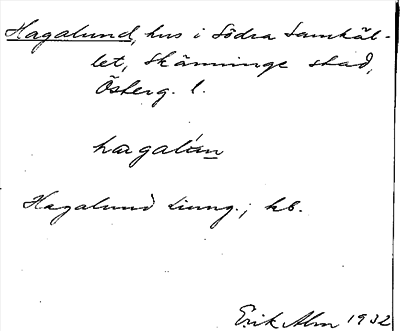 Hagalund, hus i Södra Samhäl-
let, Skänninge stad,
Österg. l.
hagalun
Hagalund Liung.; kb.
Erik Alm 1932